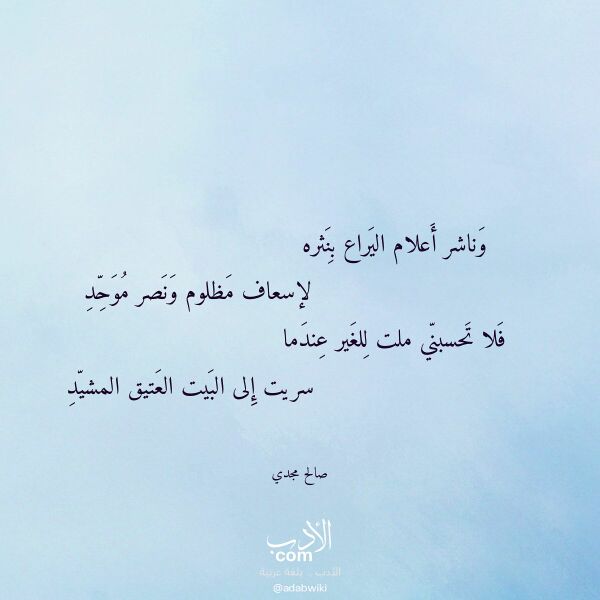 وَناشر أَعلام اليَراع بِنَثره
لإسعاف مَظلوم وَنَصر مُوَحِّدِ
فَلا تَحسبنّي ملت لِلغَير عِندَما
سريت إِلى البَيت العَتيق المشيّدِ
صالح مجدي
الأدب
com
الأدب .. بلغة عربية
@adabwiki